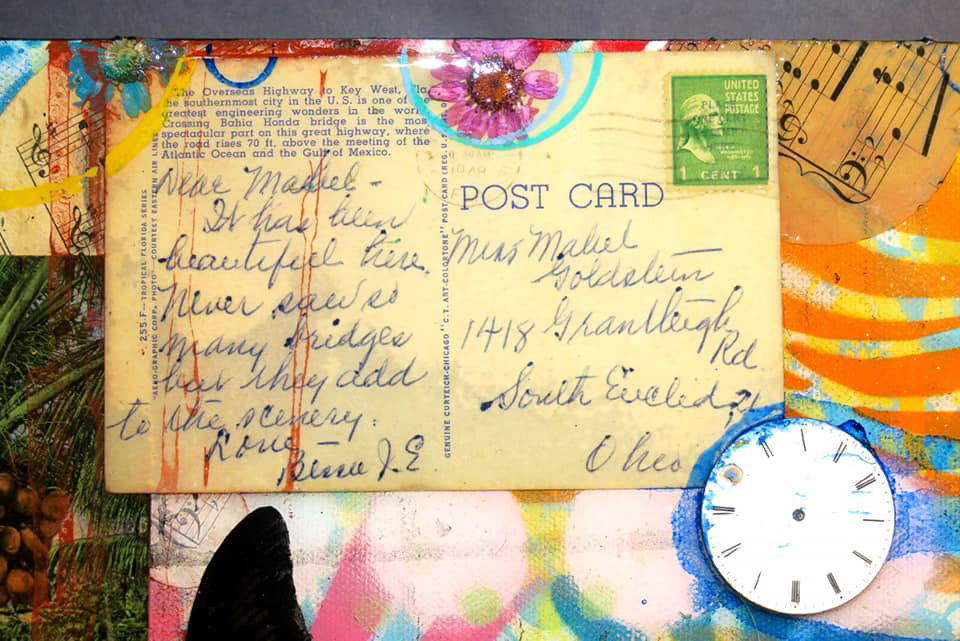 The Overseas Highway to Key West, Fla.
the southernmost city in the U.S. is one of the
greatest engineering wonders in the world.
Crossing Bahia Honda bridge is the most
spectacular part on this great highway, where
the road rises 70 ft. above the meeting of the
Atlantic Ocean and the Gulf of Mexico.
Dear Mabel -
It has been
beautiful here.
Never saw so
many bridges
but they add
to the scenery.
Love -
J.E
255-F—TROPICAL FLORIDA SERIES
"AERO-GRAPHIC CORP. PHOTO—COURTESY EASTERN AIR LINES
GENUINE CURTEICH-CHICAGO "C.T. ART-COLORTONE" POST CARD (REG. U.
POST CARD
UNITED
STATES
POSTAGE
WASHINGTON
1 CENT 1
Miss Mabel
Goldstein
1418 Grantleigh
Rd
South Euclid 21
Ohio